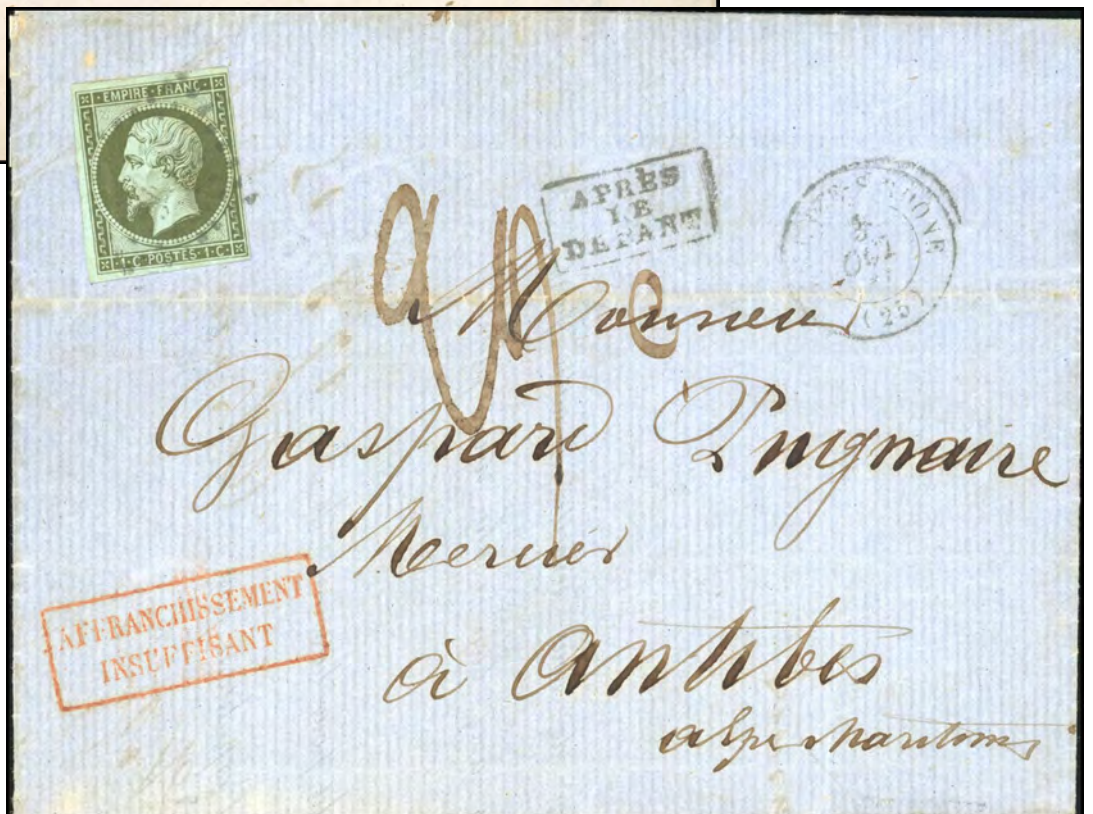 EMPIRE·FRANC·
·1·C·POSTES·1·C·
APRÈS
LE
DÉPART
OCT
(25)
Monsieur
Gaspard Puignaire
Mercier
à Antibes
alpes Maritimes
AFFRANCHISSEMENT
INSUFFISANT